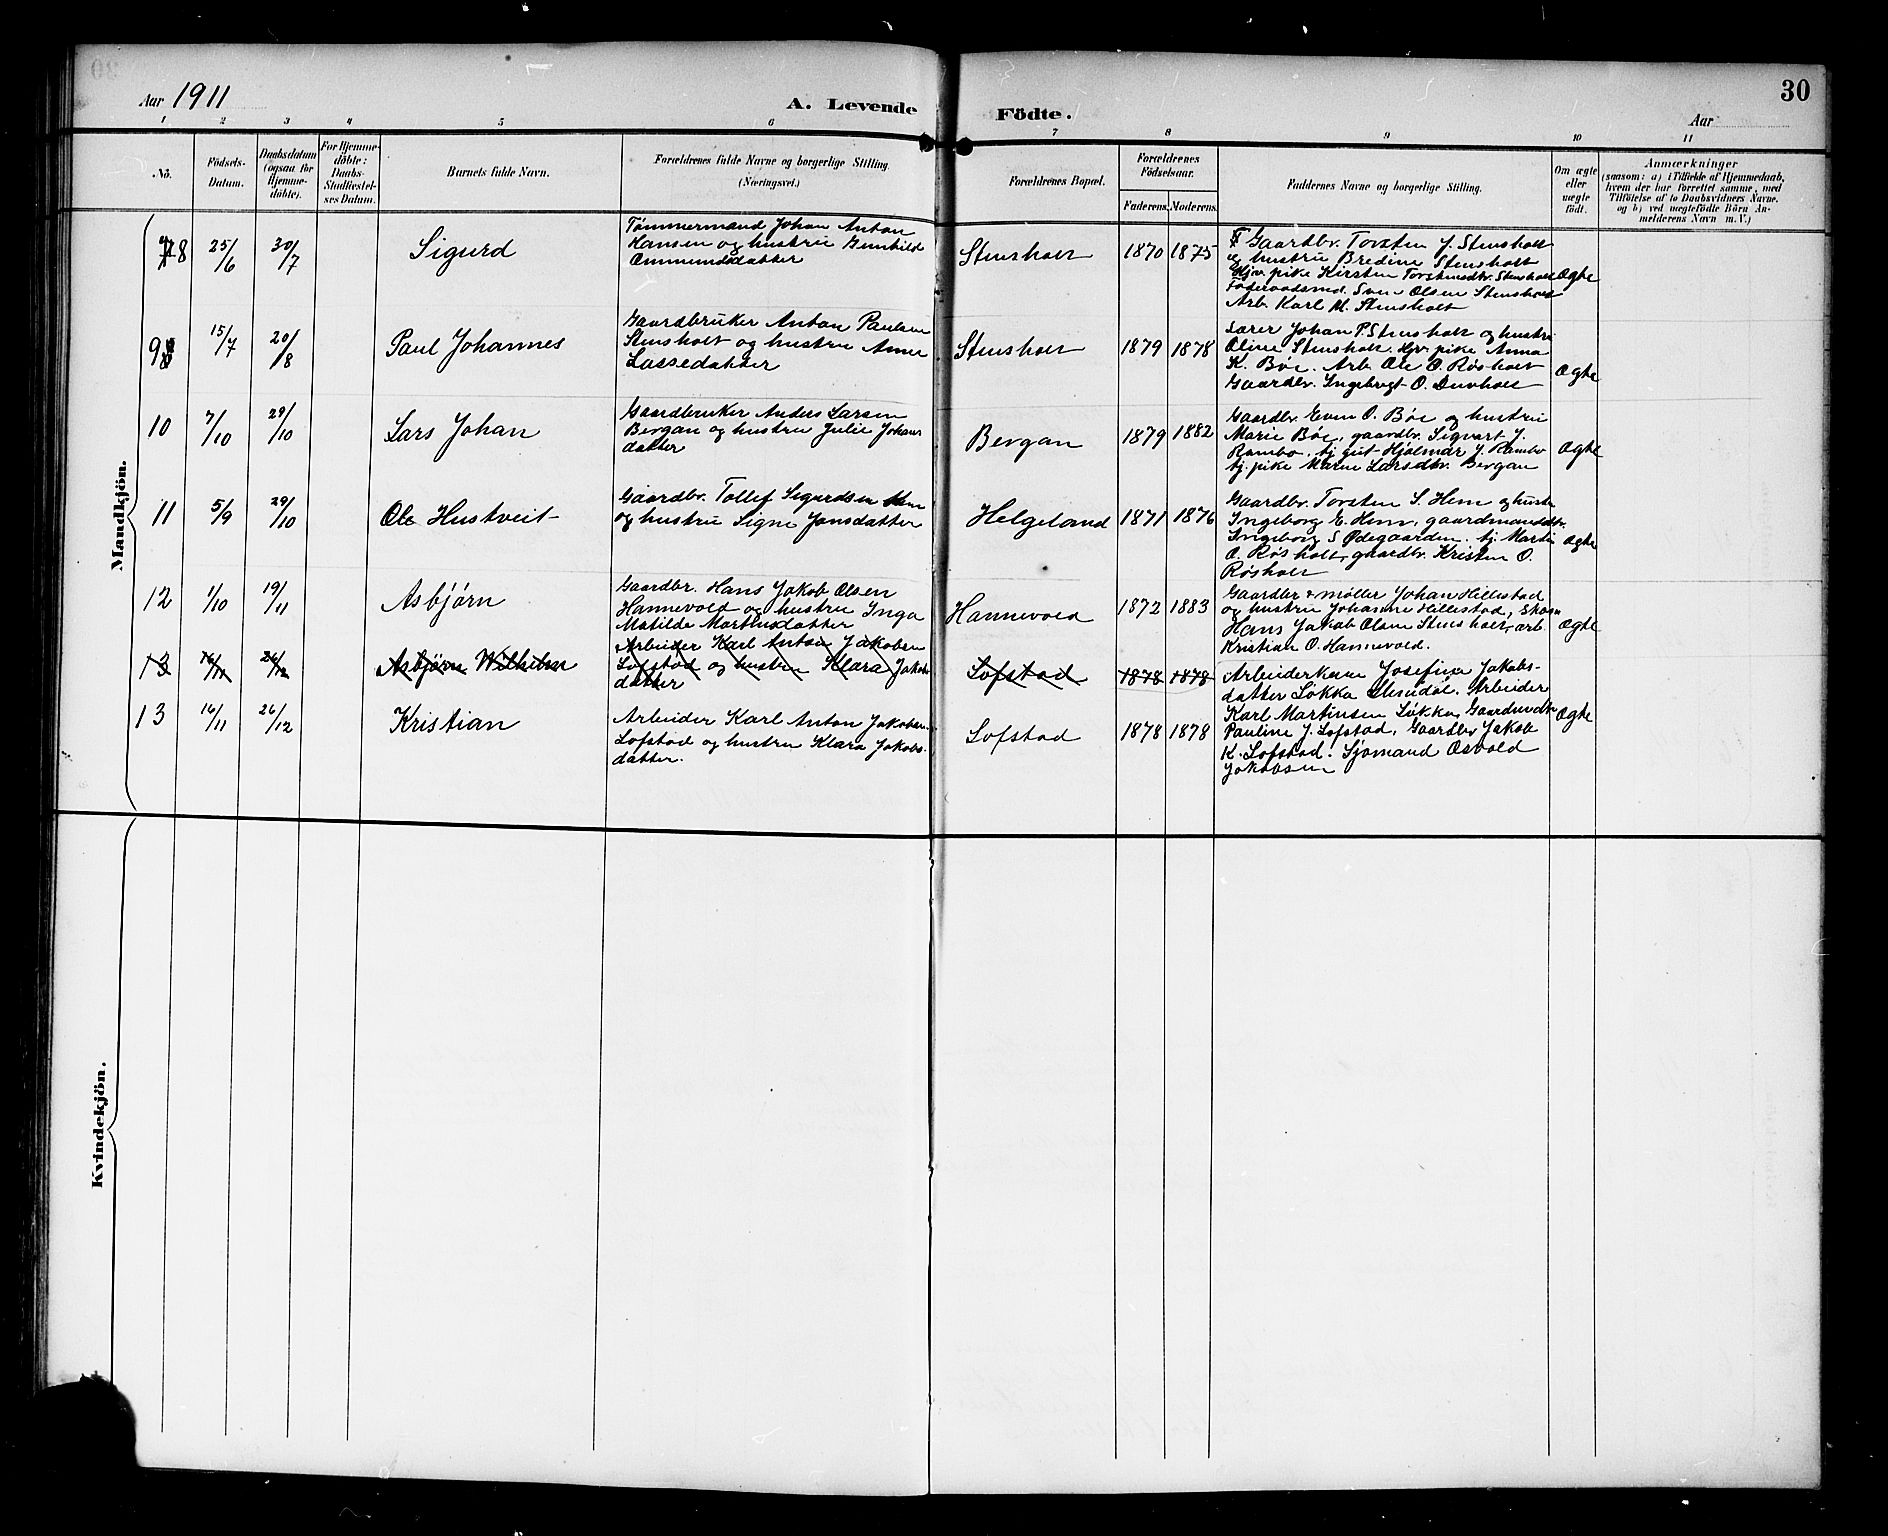 Aar 1911
A. Levende Födte.
30
Aar
1 2 3 4 5 6 7 8 9 10 11
Nö.
Födsels-
Datum.
Daabsdatum
(ogsaa for
Hjemme-
döbte).
For Hjemme-
döbte:
Daabs-
Stadfæstel-
ses Datum.
Barnets fulde Navn.
Forældrenes fulde Navne og borgerlige Stilling.
(Næringsvei.)
Forældrenes Bopæl.
Forældrenes
Födselsaar.
Faderens. Moderens.
Faddernes Navne og borgerlige Stilling.
Om ægte
eller
uægte
födt.
Anmærkninger
(saasom: a) i Tilfælde af Hjemmedaab,
hvem der har forrettet samme, med
Tilföielse af to Daabsvidners Navne.
og b) ved uægtefödte Börn An-
melderens Navn m. V.)
Mandkjön.
8 25/6 30/7 Sigurd
Tømmermand Johan Anton
Hansen og hustru Gunhild
Ommundsdatter
Stensholt 1870 1875
Gaardbr. Torsten J. Stensholt
og hustru Bredine Stensholt
Hjv. pike Kirsten Torstensdtr. Stensholt
Föderaadsmd. Sven Olsen Stensholt
Arb. Karl M. Stensholt
Ægte
9 15/7 20/8 Paul Johannes
Gaardbruker Anton Paulsen
Stensholt og hustru Anne
Lassedatter
Stensholt 1879 1878
Lærer Johan P. Stensholt og hustru
Oline Stensholt. Hjv. pike Anna
K. Bøe. Arb. Ole O. Røsholt
Gaardbr. Ingebregt O.
Ægte
10 7/10 29/10 Lars Johan
Gaardbruker Anders Larsen
Bergan og hustru Julie Johans
datter
Bergan 1879 1882
Gaardbr. Even O. Bøe og hustru
Marie Bøe, gaardbr. Sigvart J.
Rambo. tj. gut Hjalmar J. Rambo
tj. pike Maren Larsdtr. Bergan
Ægte
11 5/9 29/10 Ole Hustveit
Gaardbr. Tollef Sigurdsen
og hustru Signe Jonsdatter
Helgeland 1871 1876
Gaardbr. Torsten S. Hem og hustru
Ingeborg E. Hem, gaardmanddtr.
Ingeborg S Ødegaarden. tj. Martin
O. Røsholt, gaardbr. Kristen O.
Røsholt
Ægte
12 1/10 19/11 Asbjørn
Gaardbr. Hans Jakob Olsen
Hannevold og hustru Inga
Matilde Martinsdatter
Hannevold 1872 1883
Gaardbr & møller Johan Hillestad
og hustru Johanne Hillestad,
Hans Jakob Olsen Stensholt, arb.
Kristian O. Hannevold.
Ægte
13 16/11 26/12 Asbjørn Wilhelm
Arbeider Karl Anton Jakobsen
Lofstad og hustru Klara Jakobs
datter
Lofstad 1878 1878
13 16/11 26/12 Kristian
Arbeider Karl Anton Jakobsen
Lofstad og hustru Klara Jakobs-
datter.
Lofstad 1878 1878
Arbeiderkone Josefine Jakobs-
datter Løkka Arbeider
Karl Martinsen Løkka,
Pauline J. Lofstad, Gaardbr Jakob
K. Lofstad. Sjømand Osvald
Jakobsen
Ægte
Kvindekjön.